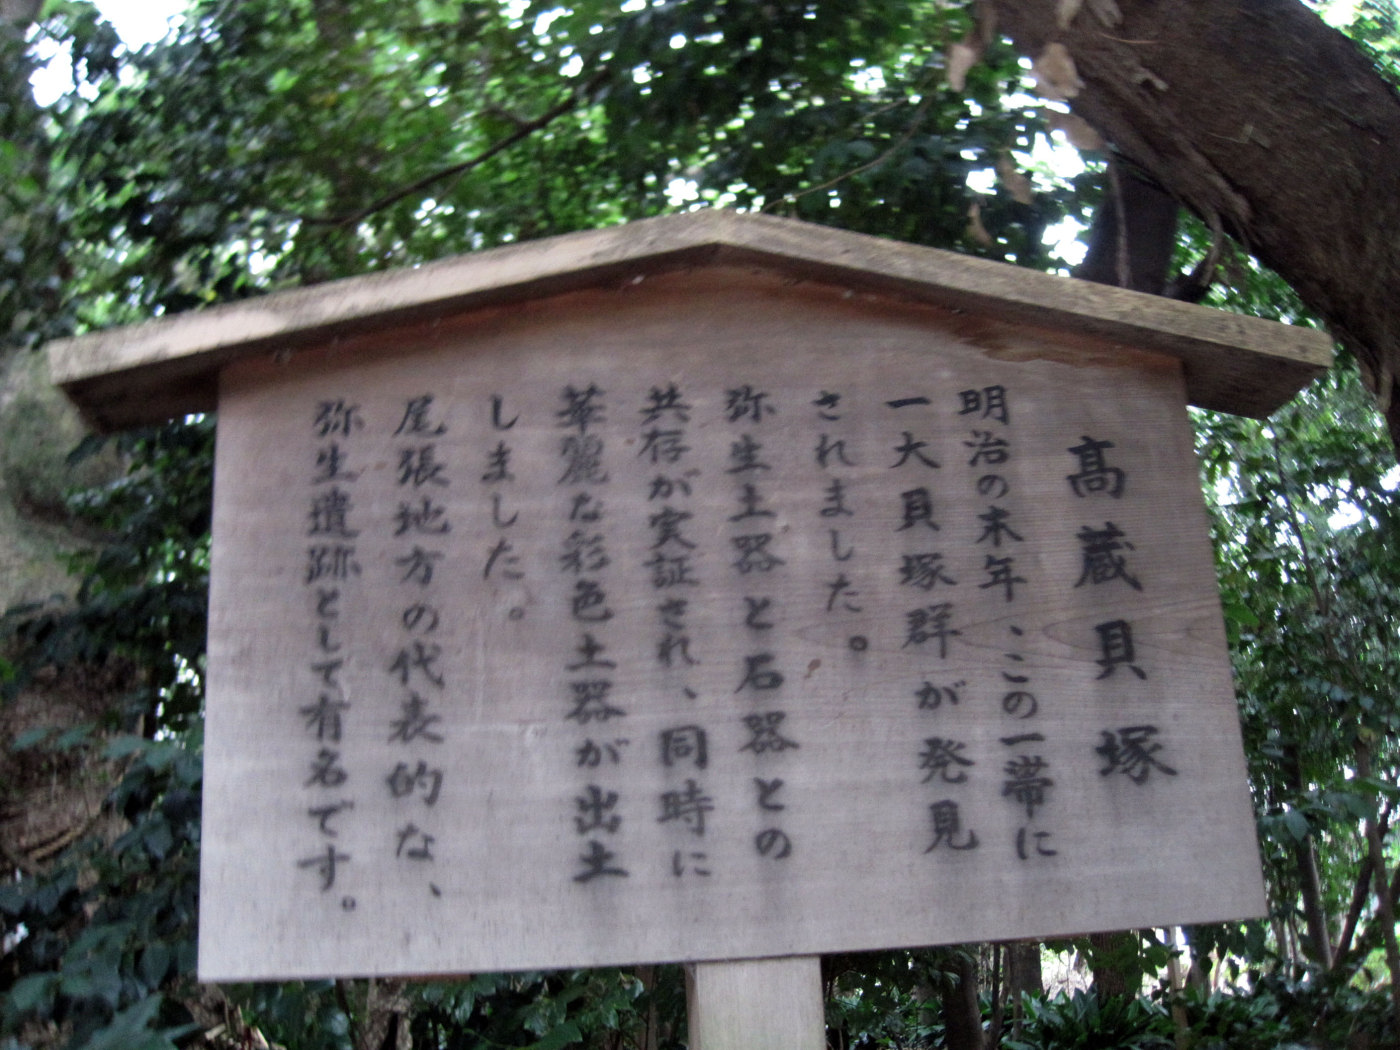 高蔵貝塚
明治の末年、この一帯に
一大貝塚群が発見
されました。
弥生土器と石器との
共存が実証され、同時に
華麗な彩色土器が出土
しました。
尾張地方の代表的な、
弥生遺跡として有名です。